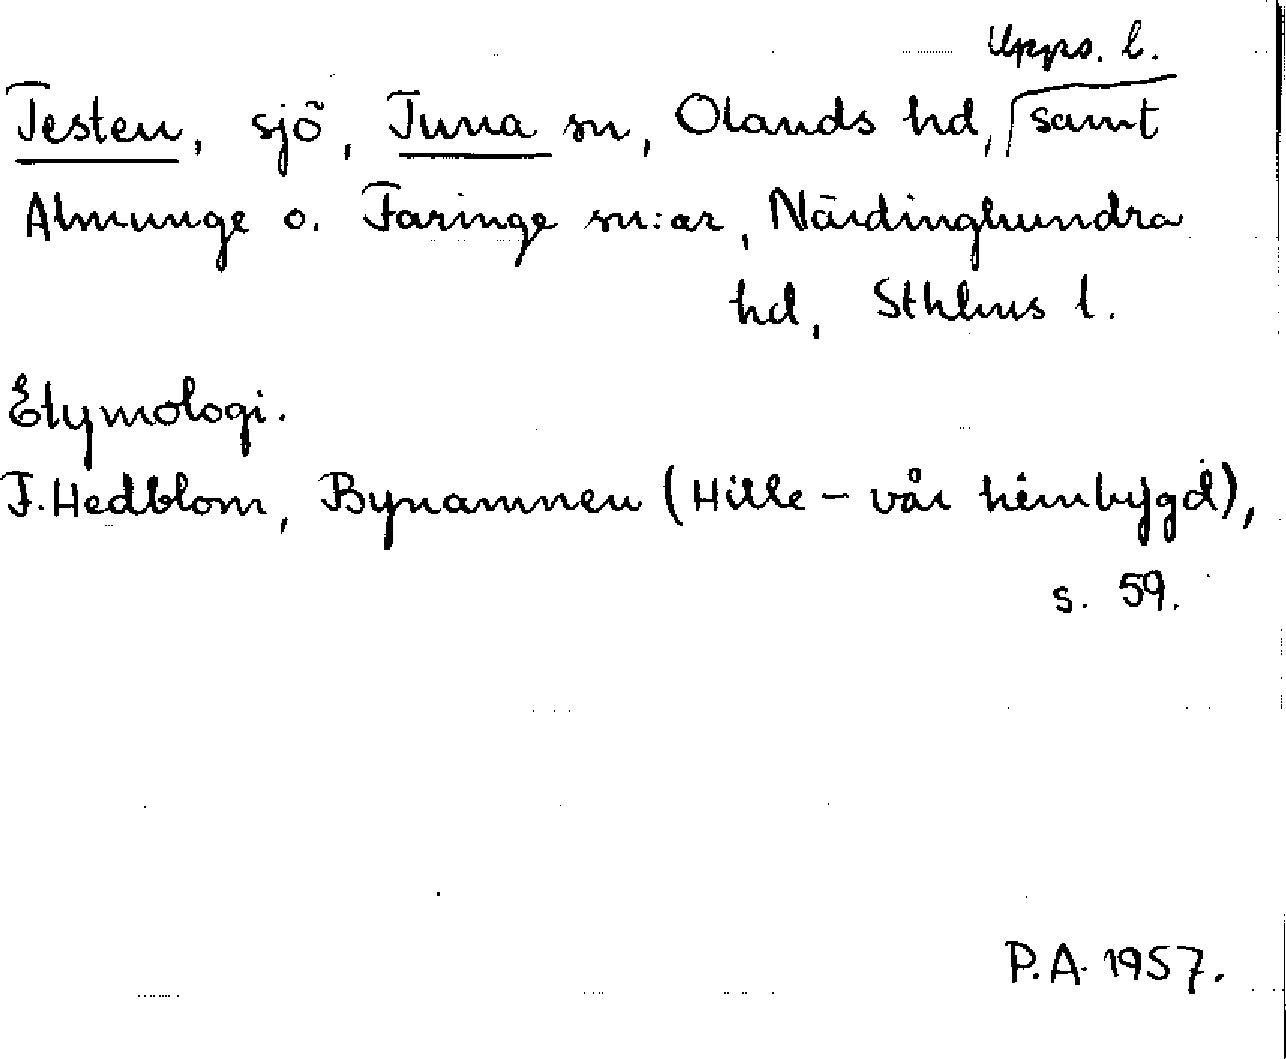 Upps. l.
Testen, sjö, Tuna sn, Olands hd, samt
Almunge o. Faringe sn:ar, Närdinghundra
hd, Sthlms l.
Etymologi.
F. Hedblom, Bynamnen (Hille - vår hembygd),
s. 59.
P.A. 1957.